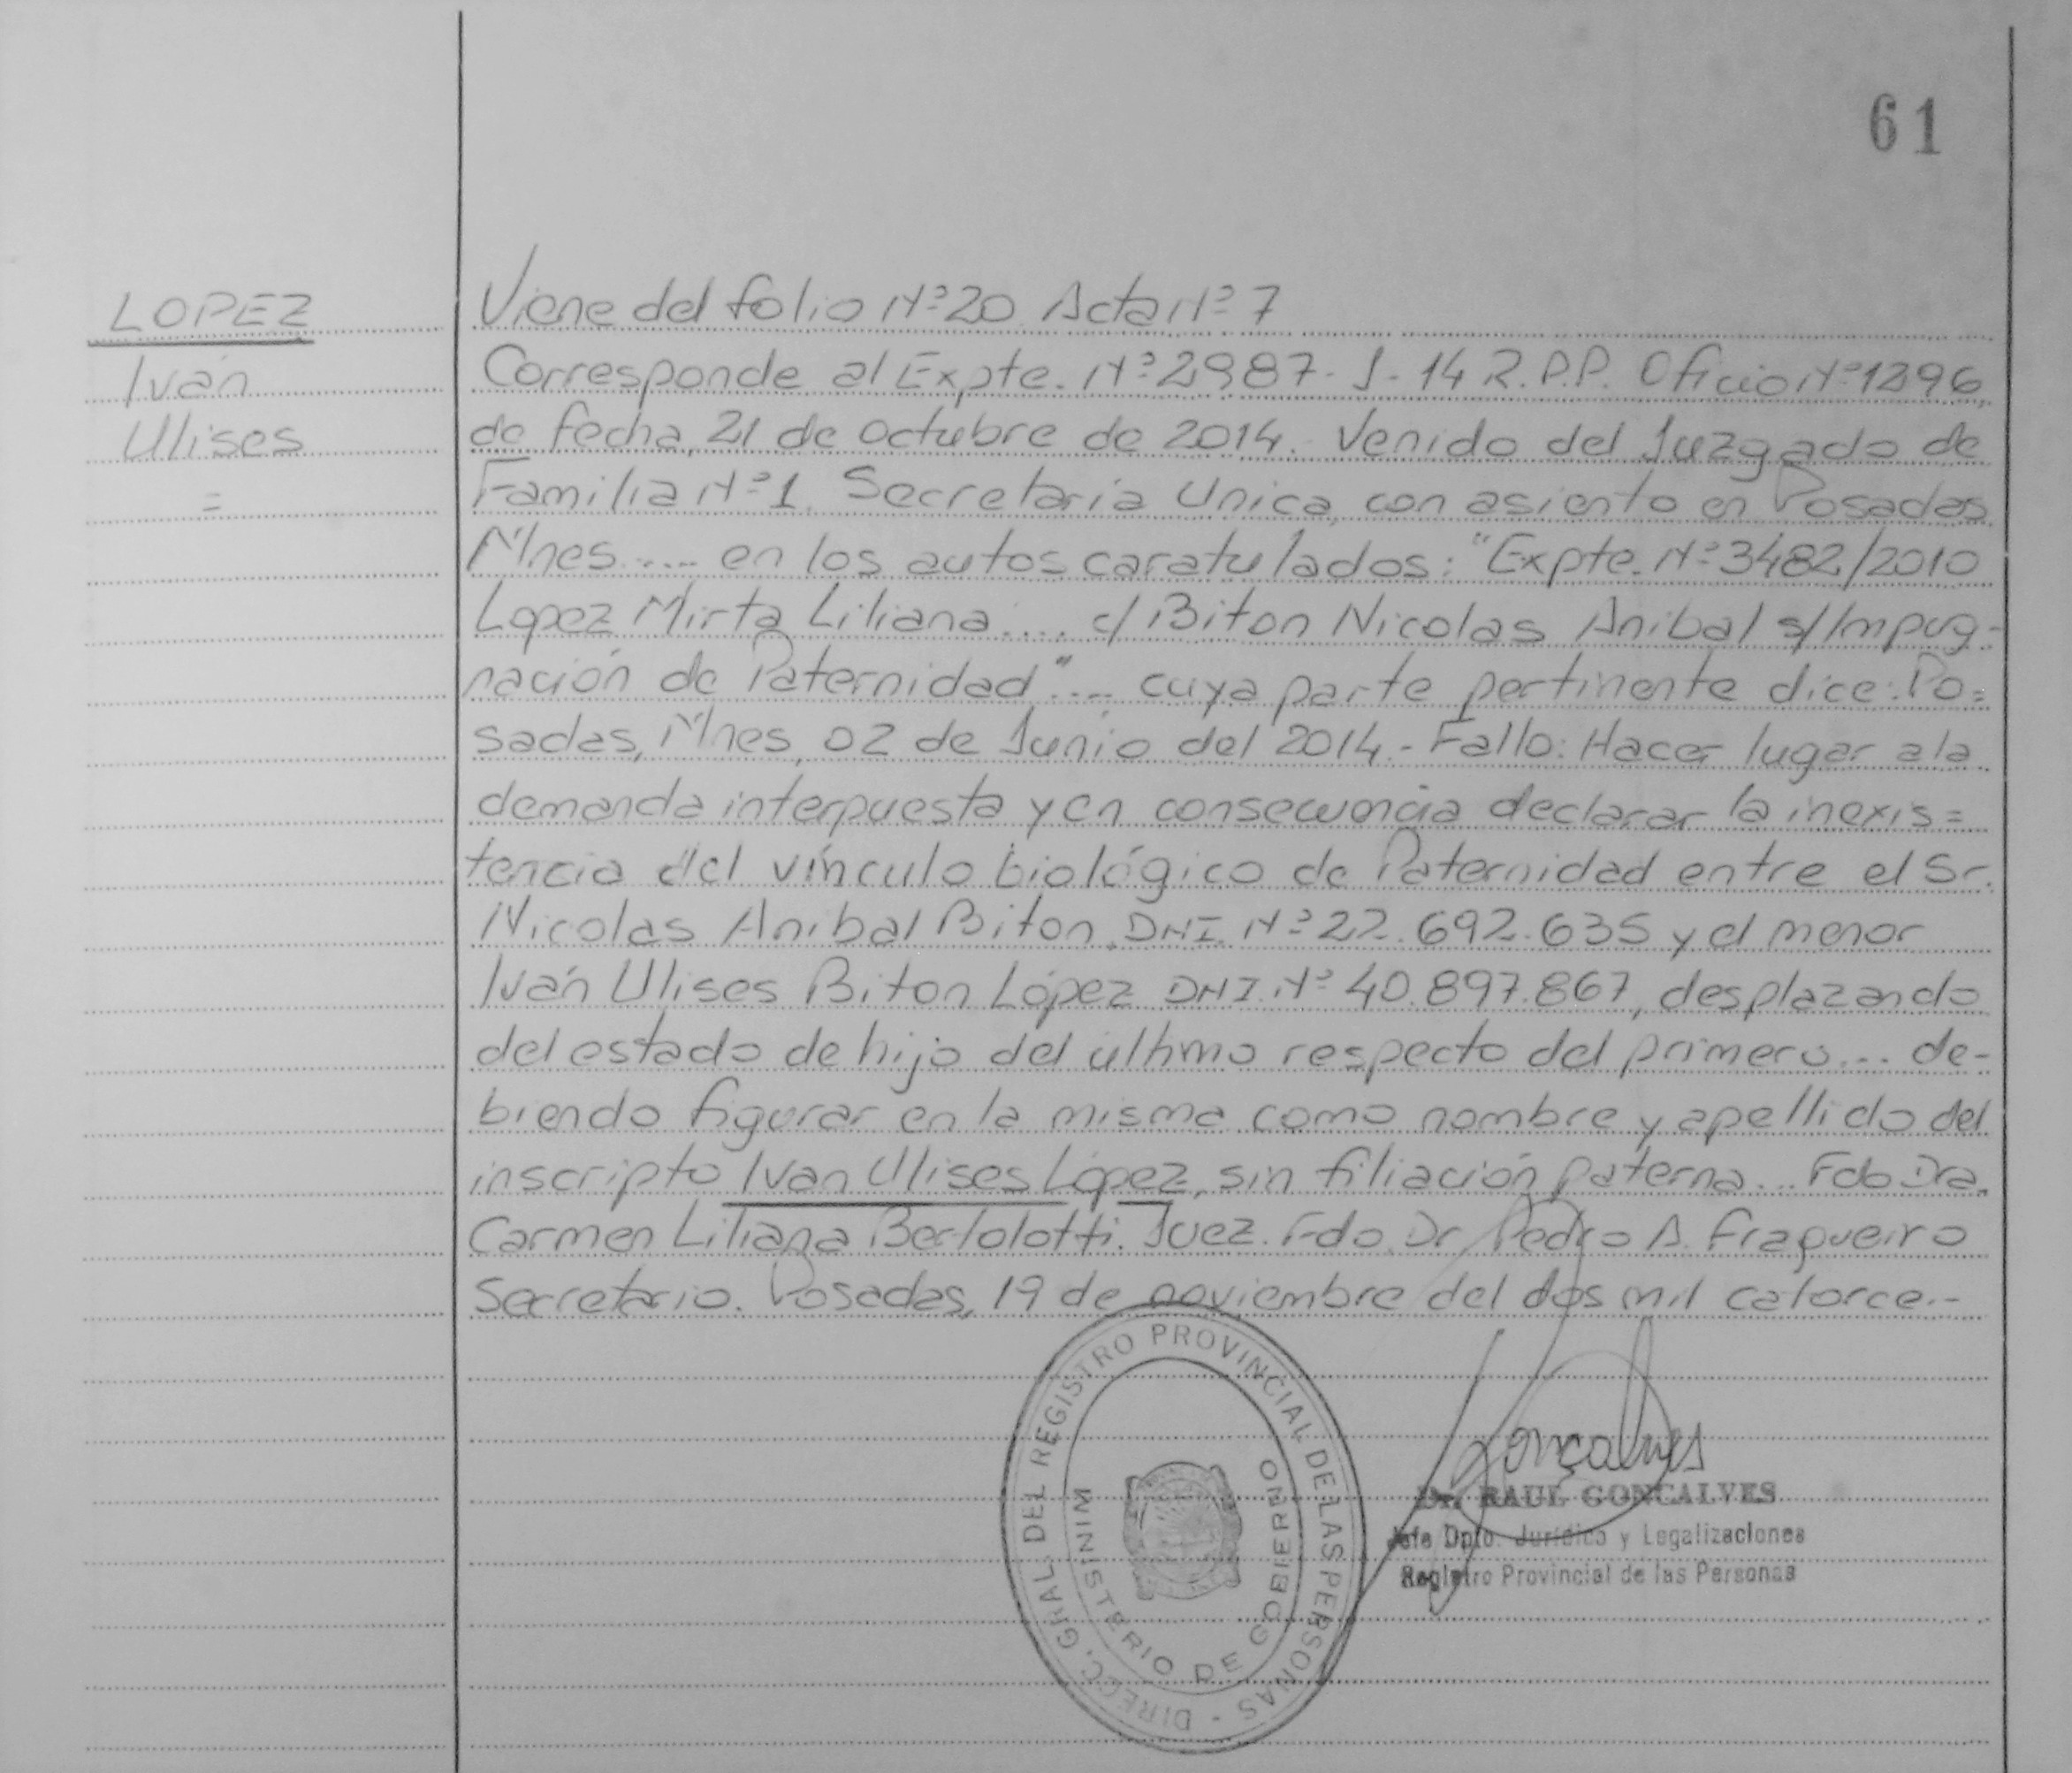 61
LOPEZ
Iván
Ulises
=
Viene del folio Nº 20 Acta Nº 7
Corresponde al Expte. Nº 2987- J- 14 R.P.P. Oficio Nº 1296
de fecha, 21 de octubre de 2014. Venido del Juzgado de
Familia Nº 1. Secretaría Unica, con asiento en Posadas
Mnes.... en los autos caratulados: "Expte. Nº 3482/2010
Lopez Mirta Liliana.... c/ Biton Nicolas Anibal s/Impug-
nación de Paternidad".... cuya parte pertinente dice: Po=
sadas, Mnes, 02 de Junio del 2014.- Fallo: Hacer lugar a la
demanda interpuesta y en consecuencia declarar la inexis=
tencia del vínculo biológico de Paternidad entre el Sr.
Nicolas Anibal Biton. DNI. Nº 22.692.635 y el menor
Iván Ulises Biton López DNI. Nº 40.897.867, desplazando
del estado de hijo del último respecto del primero... de-
biendo figurar en la misma como nombre y apellido del
inscripto Ivan Ulises López, sin filiación paterna... Fdo Dra.
Carmen Liliana Bertolotti. Juez. Fdo. Dr Pedro A. Fragueiro
Secretario. Posadas, 19 de noviembre del dos mil catorce.-
DIRECC. GRAL. DEL REGISTRO PROVINCIAL DE LAS PERSONAS -
MINISTERIO DE GOBIERNO
Gonçalves
Dr. RAUL GONCALVES
Jefe Dpto. Jurídico y Legalizaciones
Registro Provincial de las Personas